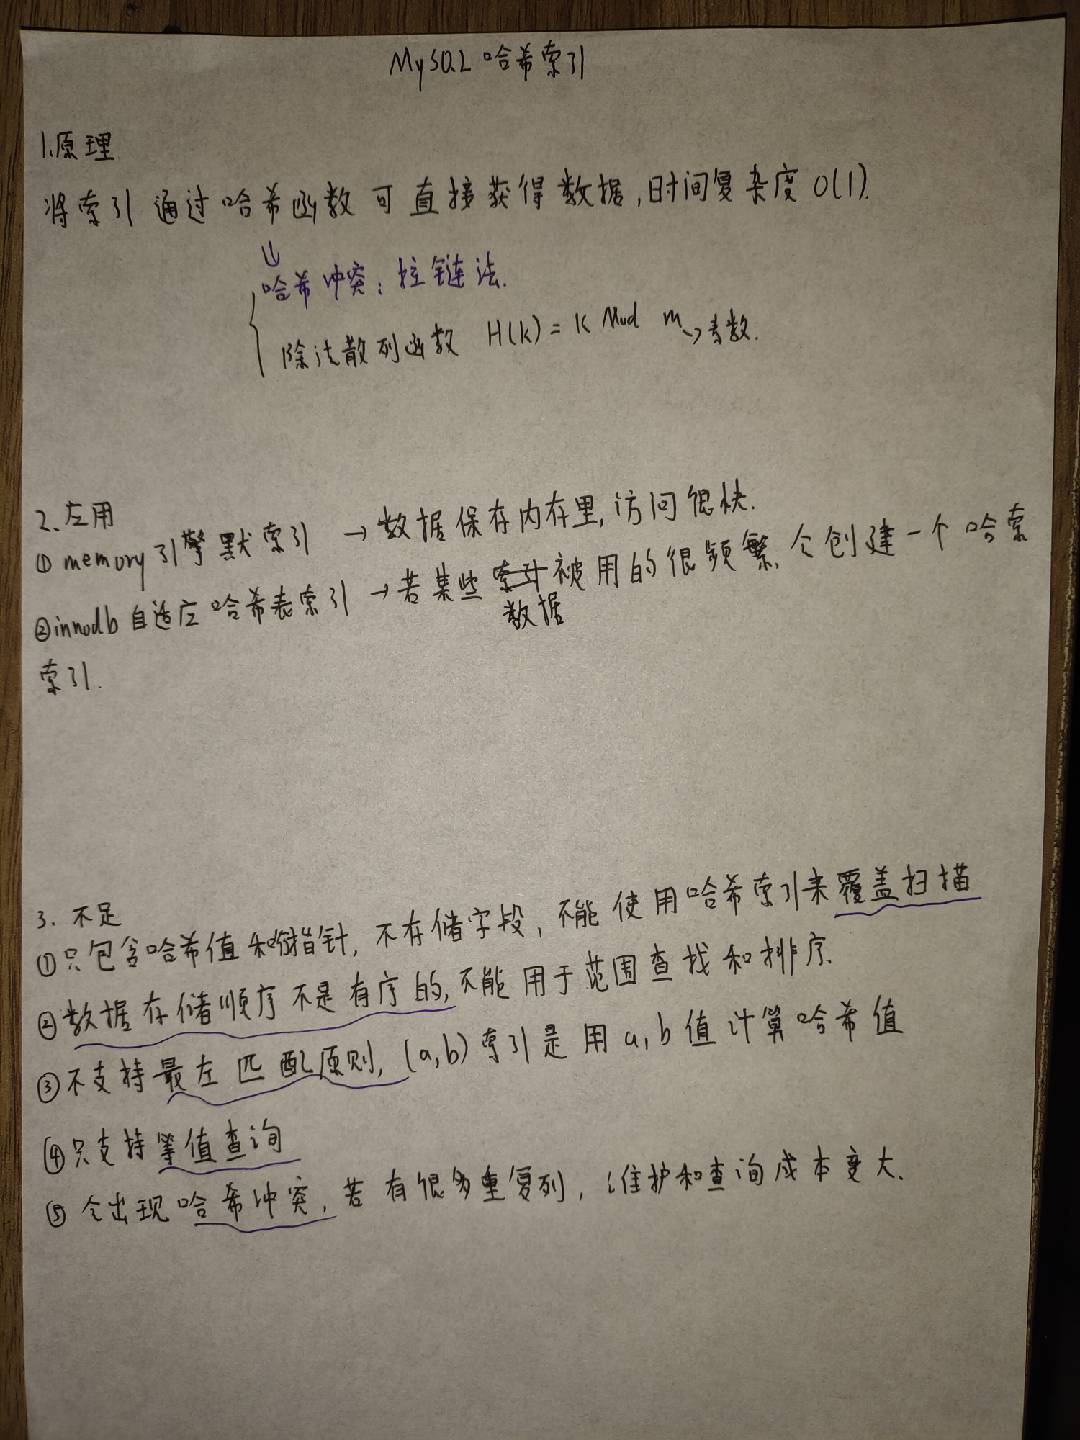 MySQL 哈希索引
1.原理
将索引通过哈希函数可直接获得数据,时间复杂度O(1).
↓
哈希冲突:拉链法.
除法散列函数 H(k)=K Mod m→素数.
2.应用
①memory引擎默索引 →数据保存内存里,访问很快.
②innodb自适应哈希表索引→若某些索引被用的很频繁,会创建一个哈索
数据
索引.
3.不足
①只包含哈希值和指针,不存储字段,不能使用哈希索引来覆盖扫描
②数据存储顺序不是有序的,不能用于范围查找和排序.
③不支持最左匹配原则,(a,b)索引是用a,b值计算哈希值
④只支持等值查询
⑤会出现哈希冲突,若有很多重复列,维护和查询成本变大.